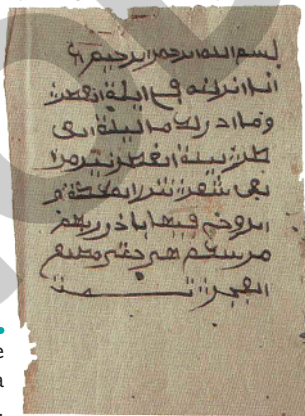 بسم الله الرحمن الرحيم
انا انزلنه في ليلة القدر
وما ادريك ما ليلة الق
در ليلة القدر خير من ا
لف شهر تنزل الملئكة و
الروح فيها باذن ربهم
مطلع حتى هي سلم
الفجر تمت
e
a